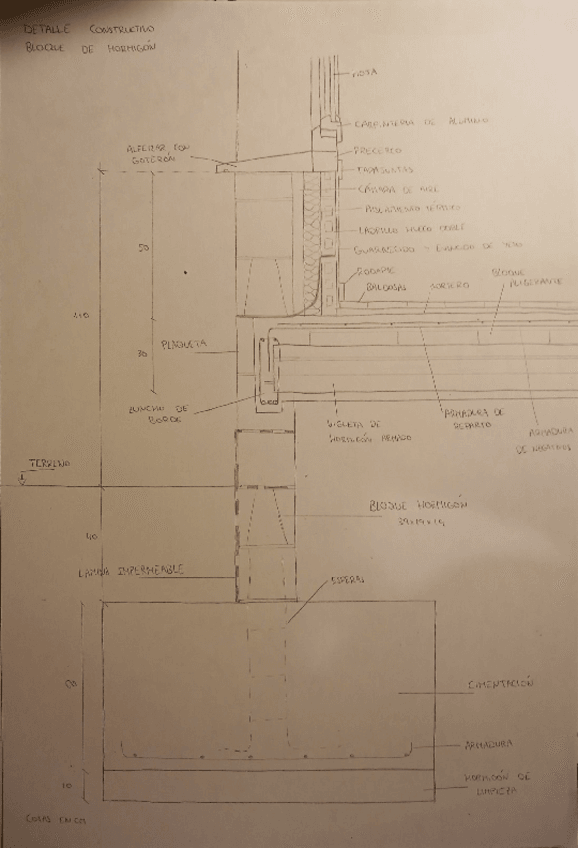 DETALLE CONSTRUCTIVO
BLOQUE DE HORMIGÓN
HOJA
CARPINTERIA DE ALUMINIO
ALFEIZAR CON
GOTERÓN
PRECERCO
TAPAJUNTAS
CÁMARA DE AIRE
AISLAMIENTO TÉRMICO
LADRILLO HUECO DOBLE
GUARNECIDO Y ENLUCIDO DE YESO
50
RODAPIE
BALDOSAS
MORTERO
BLOQUE
ALIGERANTE
110
30
PLAQUETA
ZUNCHO DE
BORDE
VIGUETA DE
HORMIGÓN ARMADO
ARMADURA DE
REPARTO
ARMADURA
DE NEGATIVOS
TERRENO
BLOQUE HORMIGÓN
40
LAMINA IMPERMEABLE
ESPERAS
CIMENTACIÓN
ARMADURA
10
HORMIGÓN DE
LIMPIEZA
COTAS EN CM